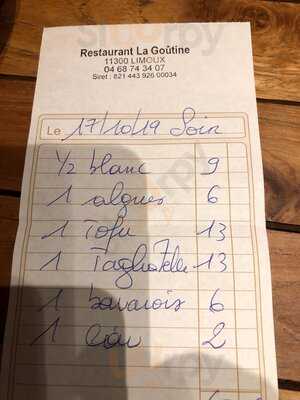 Restaurant La Goûtine
11300 LIMOUX
04 68 74 34 07
Siret : 821 443 926 00034
Le 17/10/19 Soir
1/2 blanc 9
1 algues 6
1 Tofu 13
1 Tagliatelle 13
1 bavarois 6
1 2